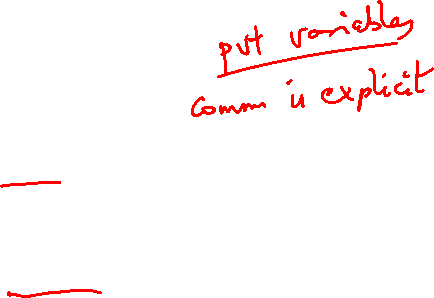 pvt variables
comm is explicit